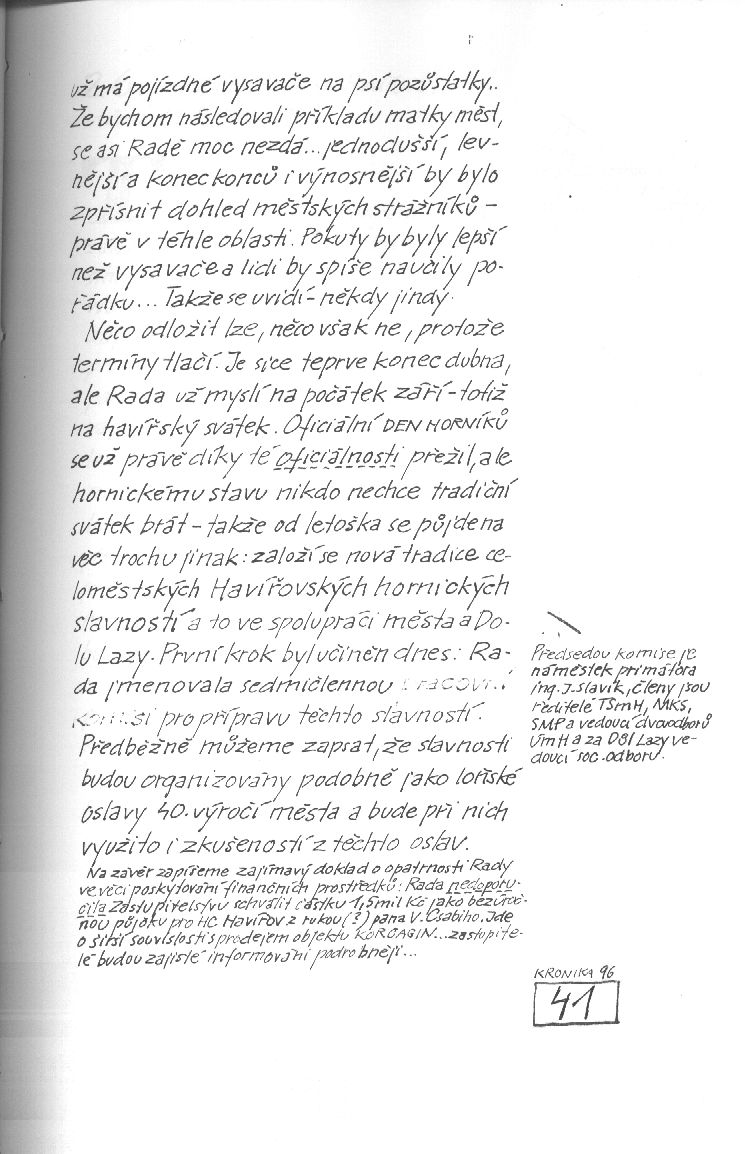 už má pojízdné vysavače na psí pozůstatky..
Že bychom následovali příkladu matky měst,
se asi Radě moc nezdá... jednodušší, lev-
nější a konec konců i výnosnější by bylo
zpřísnit dohled městských strážníků -
právě v téhle oblasti. Pokuty by byly lepší
než vysavače a lidi by spíše naučily po-
řádku... Takže se uvidí - někdy jindy.
Něco odložit lze, něco však ne, protože
termíny tlačí. Je sice teprve konec dubna,
ale Rada už myslí na počátek září - totiž
na havířský svátek. Oficiální DEN HORNÍKŮ
se už právě díky té oficiálnosti přežil, ale
hornickému stavu nikdo nechce tradiční
svátek brát - takže od letoška se půjde na
věc trochu jinak: založí se nová tradice ce-
loměstských Havířovských hornických
slavností a to ve spolupráci města a Do-
lu Lazy. První krok byl učiněn dnes: Ra-
da jmenovala sedmičlennou pracovní
komisi pro přípravu těchto slavností.
Předběžně můžeme zapsat, že slavnosti
budou organizovány podobně jako loňské
oslavy 40. výročí města a bude při nich
využito i zkušeností z těchto oslav.
Na závěr zapíšeme zajímavý doklad o opatrnosti Rady
ve věci poskytování finančních prostředků: Rada nedoporu-
čila Zastupitelstvu schválit částku 1,5 mil Kč jako bezúroč-
nou půjčku pro HC Havířov z rukou (?) pana V. Csabiho. Jde
o širší souvislosti s prodejem objektu KORČAGIN... zastupite-
lé budou zajisté informováni podrobněji...
Předsedou komise je
náměstek primátora
ing. J. Slavík, členy jsou
ředitelé TSmH, MKS,
SMP a vedoucí dvou odborů
ÚmH a za Důl Lazy ve-
doucí soc. odboru.
KRONIKA 96
41